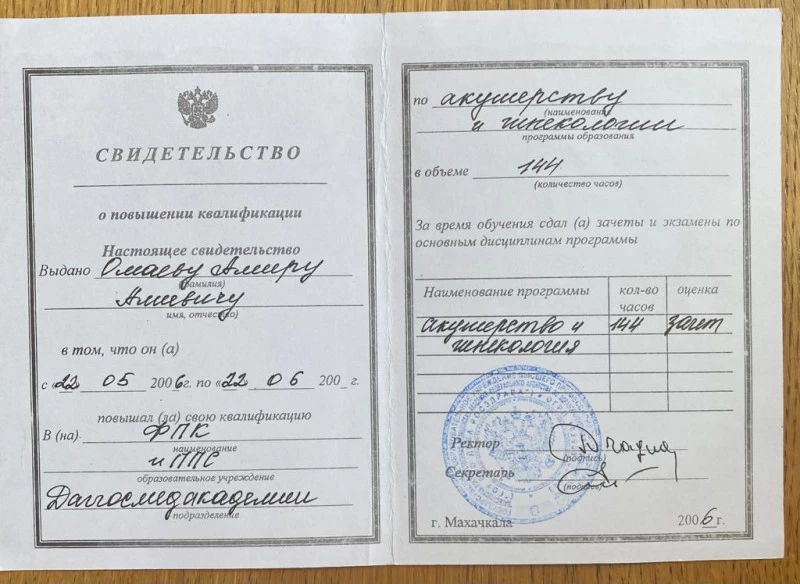 СВИДЕТЕЛЬСТВО
о повышении квалификации
Настоящее свидетельство
Выдано Омаеву Амиру
(фамилия)
Алиевичу
имя, отчество)
в том, что он (а)
с «22 05 2006г. по «22 06 200_ г.
повышал (ла) свою квалификацию
В (на) ФПК
наименование
и ППС
образовательное учреждение
Даггосмедакадемии
подразделение
по акушерству
(наименование
и гинекологии
программы образования
в объеме 144
(количество часов)
За время обучения сдал (а) зачеты и экзамены по
основным дисциплинам программы
Наименование программы кол-во часов оценка
акушерство и 144 зачет
гинекология
Ректор
(подпись)
Секретарь
(подпись)
г. Махачкала 2006г.